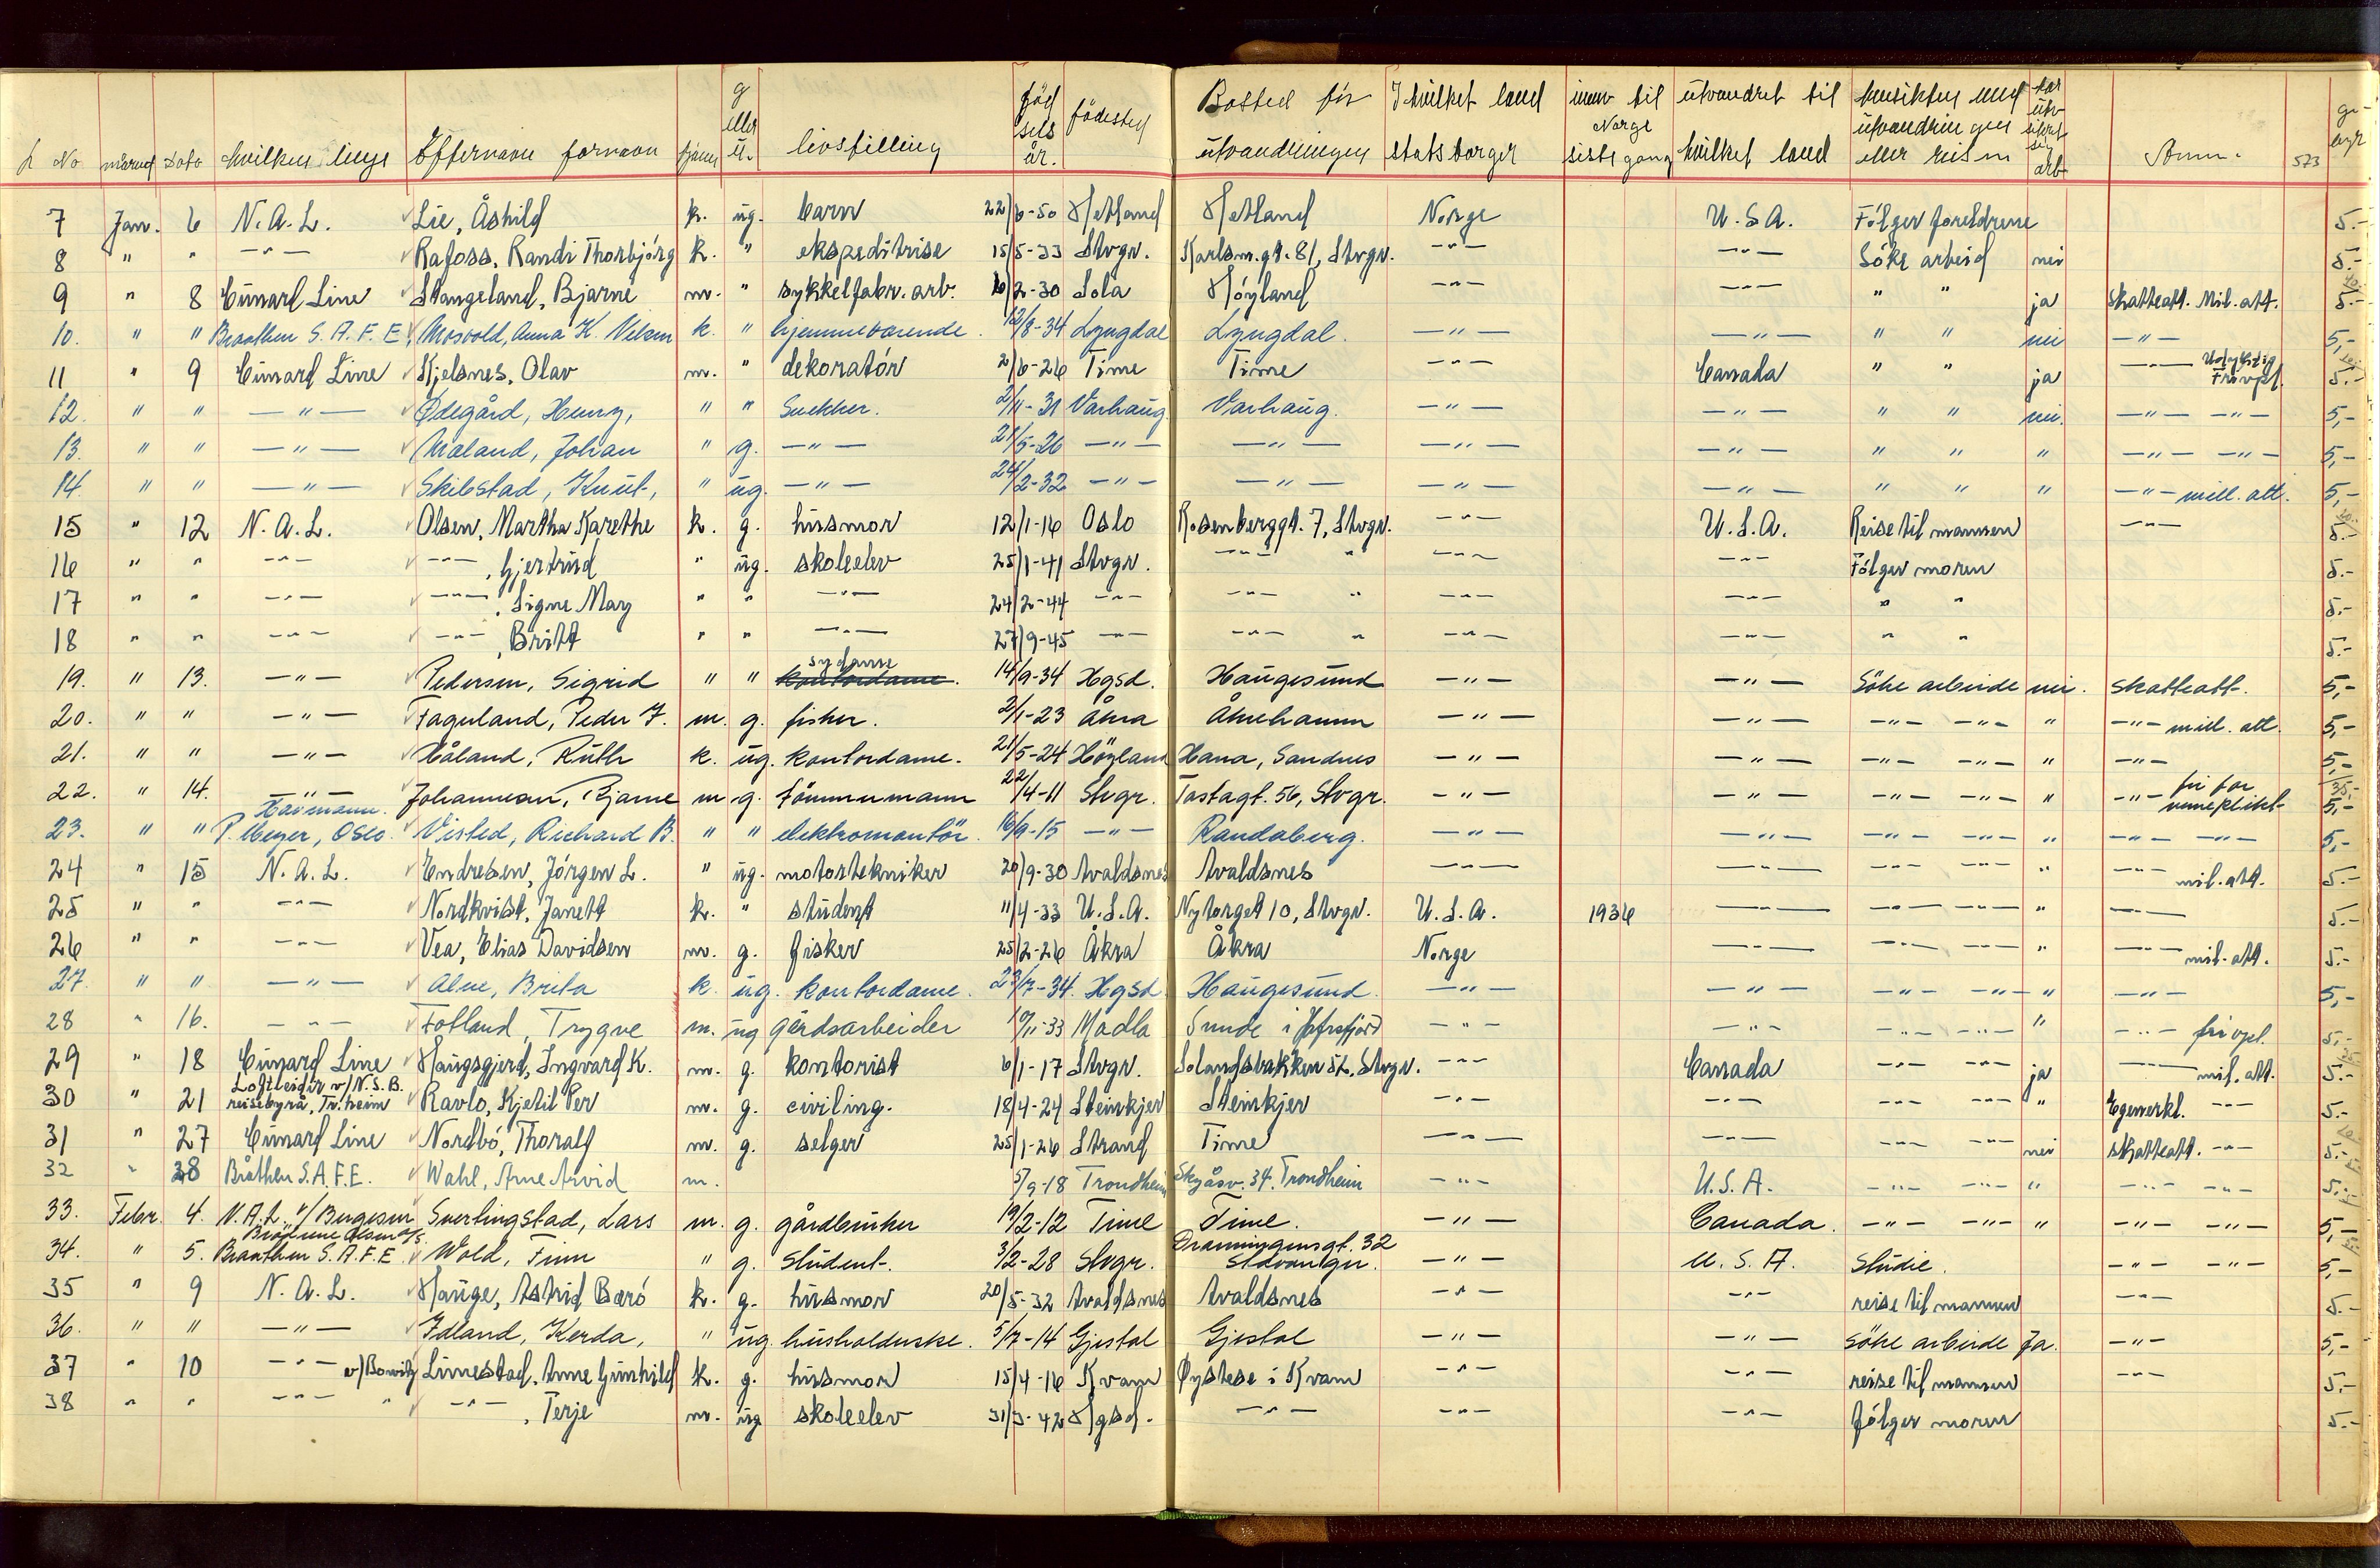 No måned Dato hvilken linje Efternavn fornavn kjønn g eller u. livsstilling fødselsår. fødested Bosted før utvandringen I hvilket land statsborger innv til Norge siste gang utvandret til hvilket land hensikten med utvandringen eller reisen har utv sikret sig arb Anm. 573 gebyr
7 Jan. 6 N.A.L. Lie, Åshild k. ug. barn 22/6-50 Hetland Hetland Norge U.S.A. Følger foreldrene 5.-
8 " " -"- Rafoss, Randi Thorbjørg k. " ekspeditrise 15/5-33 Stvgr. Karlsm.gt. 81, Stvgr. -"- -"- Søke arbeid nei 5.-
9 " 8 Cunard Line Stangeland, Bjarne m. " sykkelfabr. arb. 10/2-30 Sola Høyland -"- -"- " " ja Skatteatt. Mil. att. 5.-
10. " " Braathen S.A.F.E. Mosvold, Anna K. Nelsen k. " hjemmeværende. 12/8-34 Lyngdal Lyngdal. -"- -"- " " nei -"- 5,-
11 " 9 Cunard Line Kjelsnes, Olav m. " dekoratør 2/6-26 Time Time -"- Canada " " ja -"- Udyktig Frivpl. 5.-
12. " " -"- Ødegård, Henry, " " Snekker. 2/11-31 Varhaug Varhaug. -"- -"- " " nei. -"- -"- 5,-
13. " " -"- Maland, Johan " g. -"- 28/5-26 -"- -"- -"- -"- " " " -"- -"- 5,-
14. " " -"- Skibstad, Knut, " ug. -"- 24/2-32 -"- -"- -"- -"- " " " -"- mill. att. 5,-
15 " 12 N.A.L. Olsen, Martha Karethe k. g. husmor 12/1-16 Oslo Rosenberggt. 7, Stvgr. -"- U.S.A. Reise til mannen -"- 5.-
16 " " -"- -"-, Gjertrud " ug. skoleelev 25/1-41 Stvgr. -"- " -"- -"- Følger moren 5.-
17 " " -"- -"-, Signe May " " -"- 24/2-44 -"- -"- " -"- -"- " " 5.-
18 " " -"- -"-, Britt " " -"- 27/9-45 -"- -"- " -"- -"- " " 5.-
19. " 13. -"- Pedersen, Sigrid " " kontordame. sydame 14/9-34 Hgsd. Haugesund -"- -"- Søke arbeide nei. skatteatt. 5,-
20. " " -"- Fageland, Peder J. m. g. fisker. 2/1-23 Åkra Åkrehamn -"- -"- -"- -"- " -"- mill. att. 5,-
21. " " -"- Håland, Ruth k. ug. kontordame. 21/5-24 Høyland Hana, Sandnes -"- -"- -"- -"- " -"- 5,-
22. " 14. -"- Johannesen, Bjarne m. g. tømmermann 22/4-11 Stvgr. Tastagt. 56, Stvgr. -"- -"- -"- -"- " -"- fri for verneplikt 5,-
23. " " Havmann. P. Meyer, Oslo. Visted, Richard B. " " elektromontør. 16/9-15 -"- Randaberg. -"- -"- -"- -"- " -"- -"- 5,-
24 " 15 N.A.L. Endresen, Jørgen L. " ug. motortekniker 20/9-30 Avaldsnes Avaldsnes -"- -"- -"- -"- " -"- mil. att. 5.-
25 " " -"- Nordkvist, Janett k. " student 11/4-33 U.S.A. Nytorget 10, Stvgr. U.S.A. 1936 -"- -"- -"- " -"- 5.-
26 " " -"- Vea, Elias Davidsen m. g. fisker 25/2-26 Åkra Åkra Norge -"- -"- -"- " -"- mil. att. 5.-
27. " " -"- Alne, Brita k. ug. kontordame. 23/7-34. Hgsd Haugesund. -"- -"- -"- -"- " -"- 5,-
28 " 16. -"- Fotland, Trygve m. ug gårdsarbeider 10/11-33 Madla Sunde i Hafrsfjord -"- -"- -"- -"- " -"- frivpl. 5,-
29 " 18 Cunard Line Haugsgjerd, Ingvard K. m. g. kontorist 6/1-17 Stvgr. Solandsbakken 52, Stvgr. -"- Canada -"- -"- ja -"- mil. att. 5.-
30 " 21 Loftleidir v/N.S.B. reisebyrå, Tr.heim Ravlo, Kjetil Per m. g. civiling. 18/4-24 Steinkjer Steinkjer -"- -"- -"- -"- " Egenerkl. -"- 5.-
31 " 27 Cunard Line Nordbø, Thoralf m. g. selger 25/1-26 Strand Time -"- -"- -"- -"- nei skatteatt. -"- 5.-
32 " 28 Bråthen S.A.F.E. Wahl, Arne Arvid m. 5/9-18 Trondheim Skyåsv. 34. Trondheim -"- U.S.A. -"- -"- " -"- -"- 5,-
33. Febr. 4. N.A.L. v/Bergesen Sverlingstad, Lars m. g. gårdbruker 19/2-12 Time Time. -"- Canada. -"- -"- " -"- -"- 5,-
34. " 5. Brødrene Olsen A/S. Braathen S.A.F.E. Wold, Finn " g. student. 3/2-28 Stvgr. Dronningensgt. 32 Stavanger. -"- U.S.A. Studie. -"- -"- 5,-
35 " 9 N.A.L. Hauge, Astrid Barø k. g. husmor 20/5-32 Avaldsnes Avaldsnes -"- -"- reise til mannen -"- 5.-
36. " " -"- Idland, Kerda, " ug. husholderske. 5/7-14 Gjestal Gjestal -"- -"- Søke arbeide Ja. -"- 5,-
37 " 10 -"- v/Bowitz Limestad, Anne Gunhild k. g. husmor 15/4-16 Kvam Øystese i Kvam -"- -"- reise til mannen -"- 5,-
38 " " -"- " -"-, Terje m. ug skoleelev 31/3-42 Hgsd. -"- -"- -"- følger moren 5.-